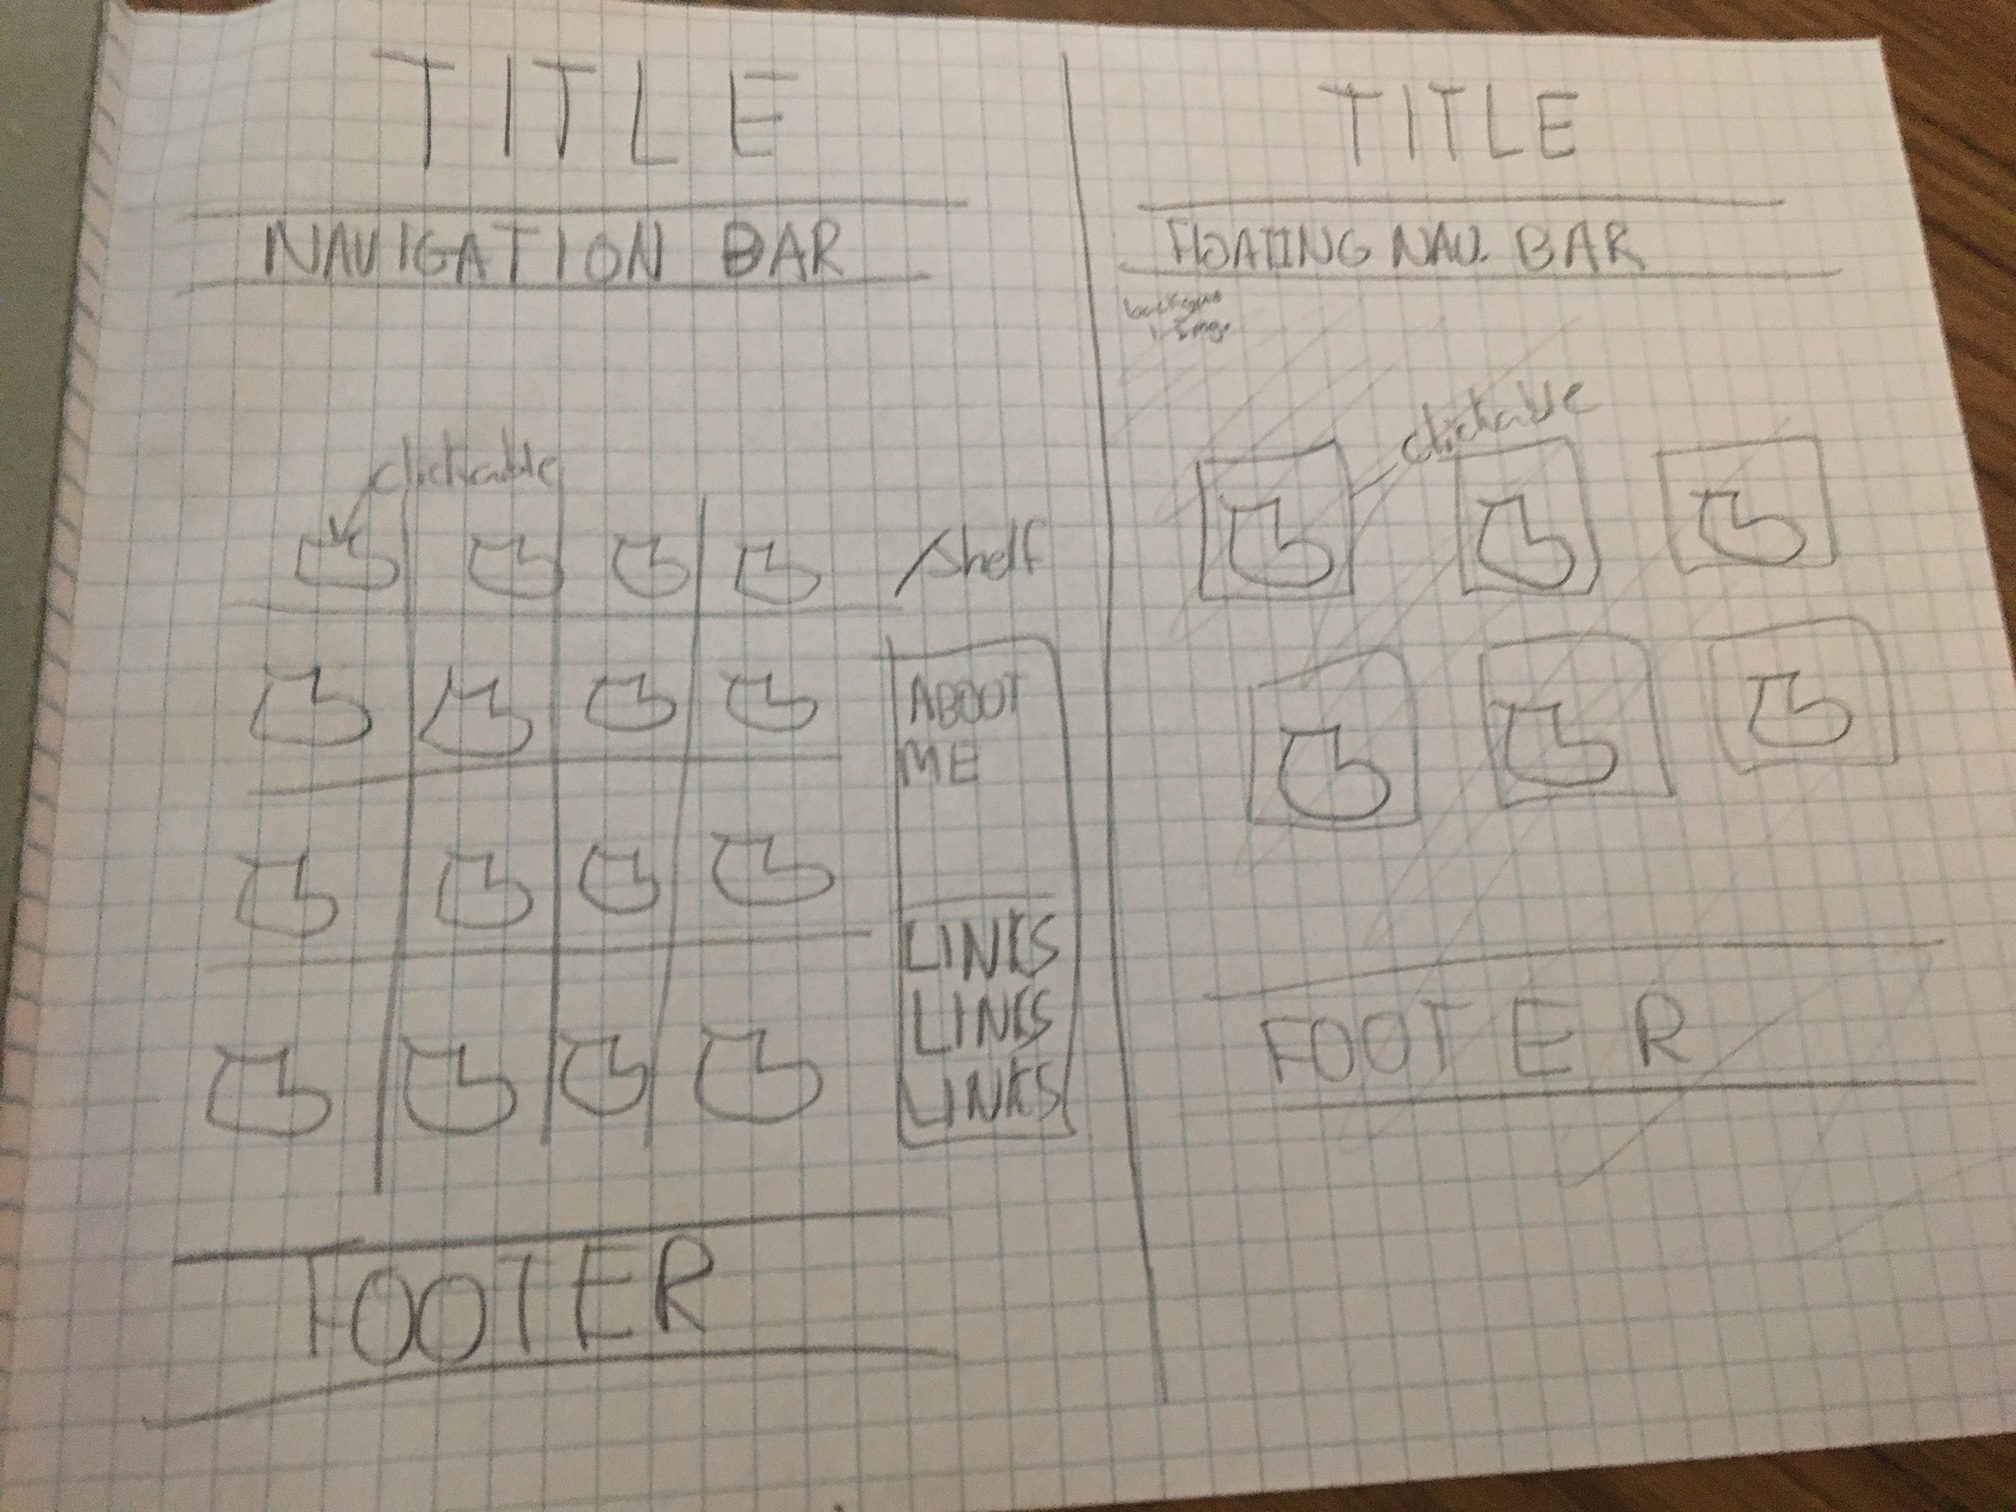 TITLE
NAVIGATION BAR
clickable
shelf
ABOUT
ME
LINKS
LINKS
LINKS
FOOTER
TITLE
FLOATING NAV. BAR
clickable
FOOTER